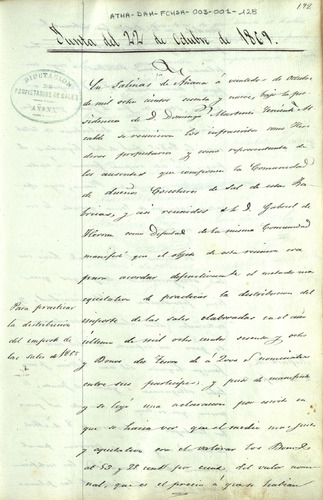 ATHA-DAH-FCHSA-003-001-128
192
Junta del 22 de Octubre de 1869.
DIPUTACION
DE
PROPIETARIOS DE SALES
AÑANA
En Salinas de Añana a veintidos de Octubre
de mil ocho cientos sesenta y nueve, bajo la pre-
sidencia de D. Domingo Teniente Al-
calde se reunieron los infrascritos como Here-
deros propietarios y como representantes de
los ausentes que componen la Comunidad
de dueños Cosecheros de Sal de estas Fa-
bricas, y asi reunidos el S. D. Gabriel de
Herran como Diputado de la misma Comunidad
manifestó que el objeto de esta reunion era
para acordar definitivamente el metodo mas
equitativo de practicar la distribucion del
importe de las sales elaboradas en el año
ultimo de mil ocho cientos sesenta y ocho
y Bonos del Tesoro de a 2000 rs nominales
entre sus participes, y puso de manifiesto
y se leyó una aclaracion por escrito en
que se hacia ver que el medio mas justo
y equitativo era el valorar los Bonos
al 53 y 28 cent. por ciento, del valor nomi-
nal, que es el precio a que se habian
Para practicar
la distribucion
del importe de
las sales de 1868